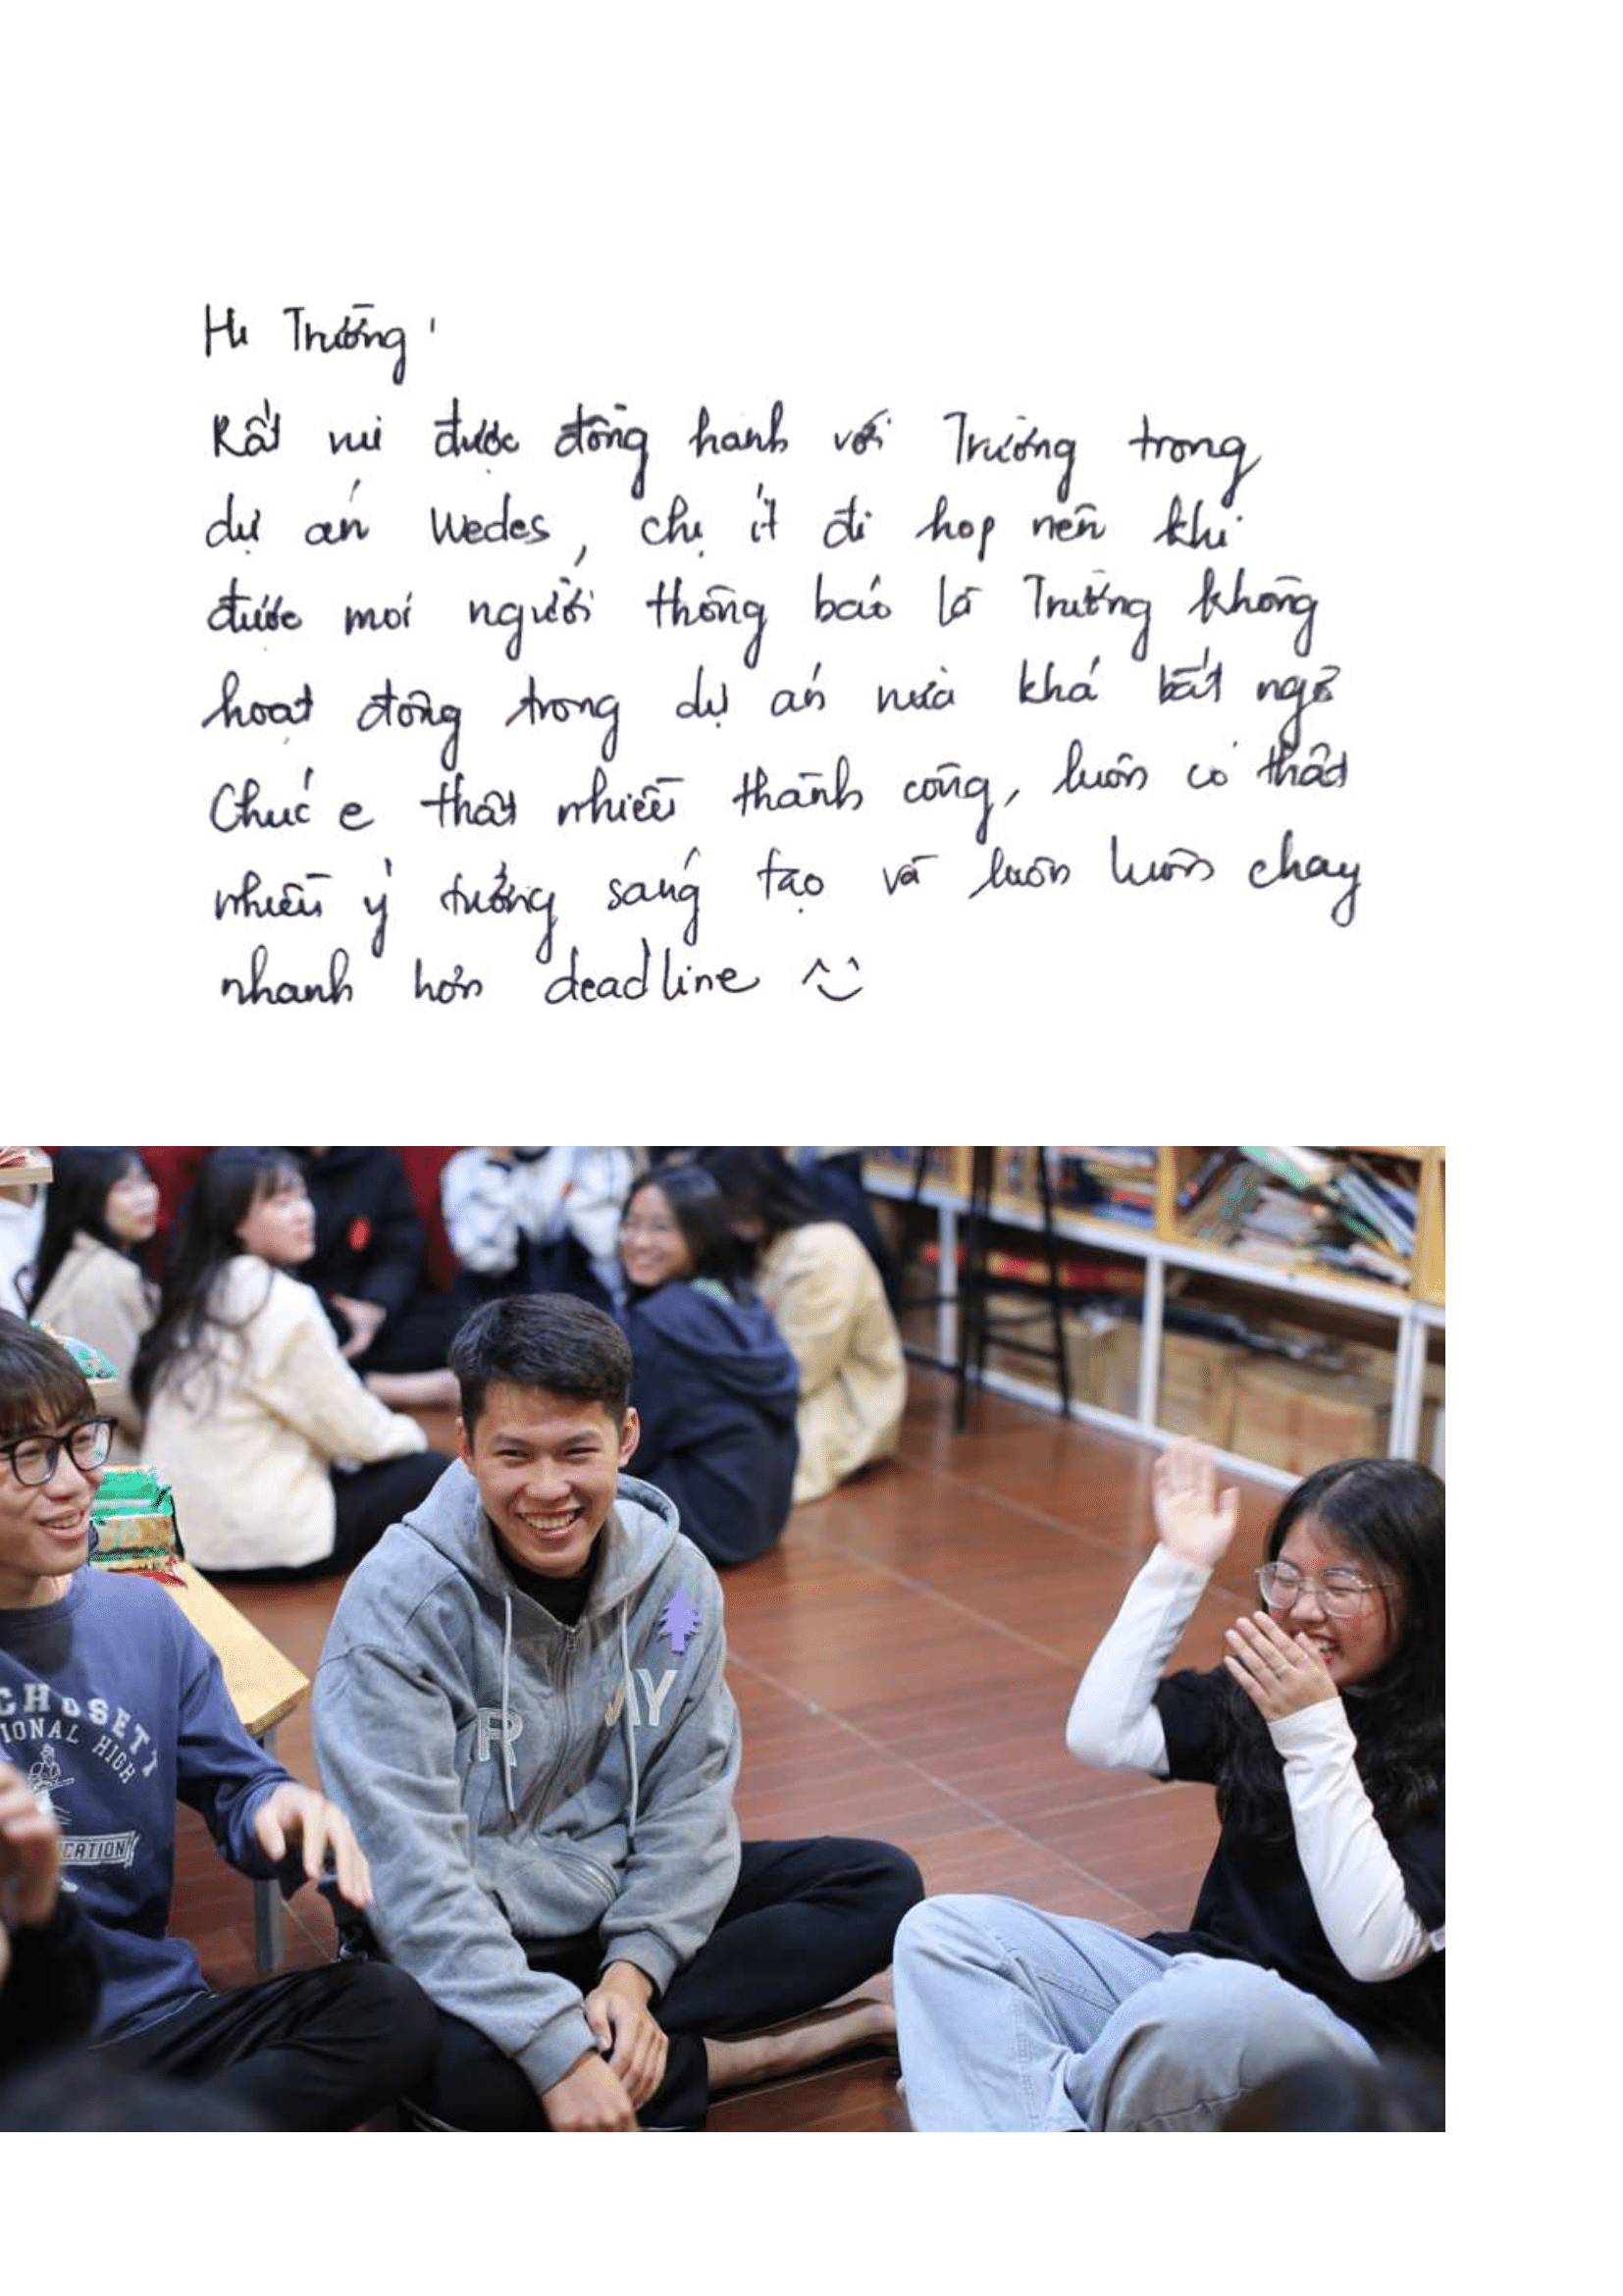 Hi Trường!
Rất vui được đồng hành với Trường trong
dự án Wedes, chị ít đi họp nên khi
được mọi người thông báo là Trường không
hoạt động trong dự án nữa khá bất ngờ
Chúc e thật nhiều thành công, luôn có thật
nhiều ý tưởng sáng tạo và luôn luôn chạy
nhanh hơn deadline ^^
CHOSET
IONAL HIGH
CATION
R AY